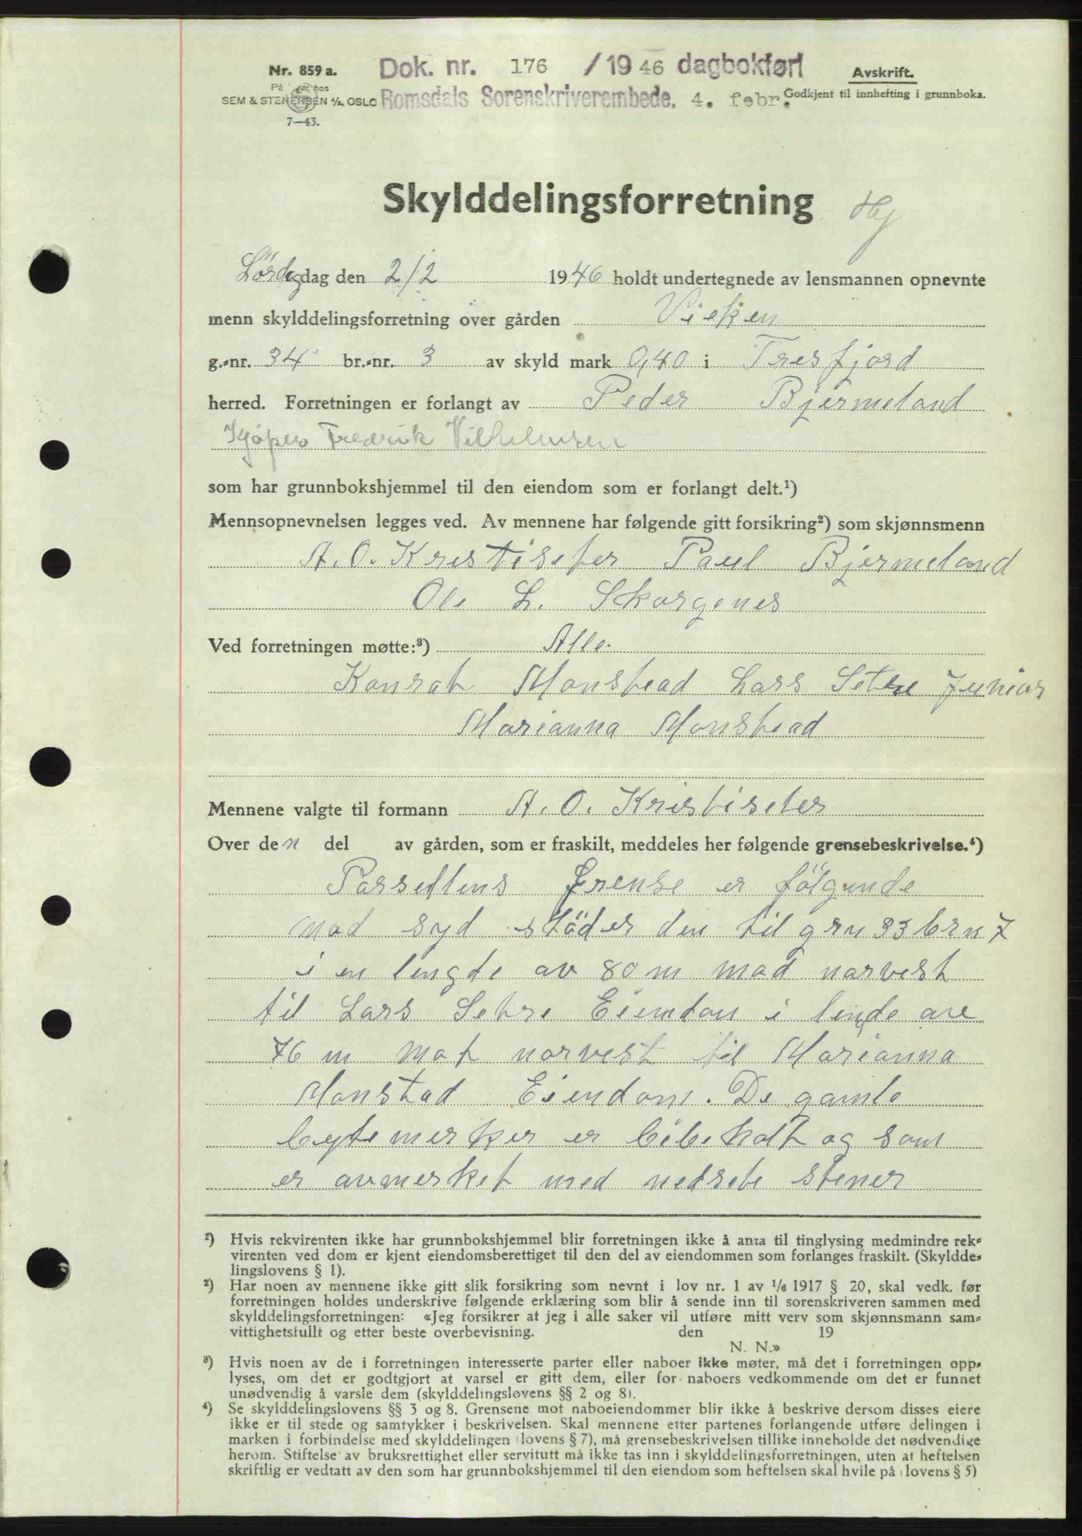 Nr. 859 a.
På lager hos
SEM & STENERSEN A/S, OSLO
7—43.
Dok. nr. 176 /1946 dagbokført
Romsdals Sorenskriverembede, 4. febr.
Avskrift.
Godkjent til innhefting i grunnboka.
Skylddelingsforretning
Lördagdag den 2/2 1946 holdt undertegnede av lensmannen opnevnte
menn skylddelingsforretning over gården Vieken
g.-nr. 34 br.-nr. 3 av skyld mark 0,40 i Tresfjord
herred. Forretningen er forlangt av Peder Bjermeland
Kjöper Fredrik Vilhelmsen
som har grunnbokshjemmel til den eiendom som er forlangt delt.¹)
Mennsopnevnelsen legges ved. Av mennene har følgende gitt forsikring²) som skjønnsmenn
A. O. Kristiseter Paul Bjermeland
Ole L. Skorgenes
Ved forretningen møtte:³) Alle.
Konrat Monstead Lars Setre Junior
Marianna Monstead
Mennene valgte til formann A. O. Kristiseter
Over den del av gården, som er fraskilt, meddeles her følgende grensebeskrivelse.⁴)
Parsellens Grense er fölgende
mod syd stöder den til grn 33 brn 7
i en lengde av 80 m mod narvest
til Lars Setre Eiendom i lende ave
76 m mot norvest til Marianna
Monstad Eiendom. De gamle
bytemerker er bibeholt og som
er avmerket med nedsete stener
¹) Hvis rekvirenten ikke har grunnbokshjemmel blir forretningen ikke å anta til tinglysing medmindre rek-
virenten ved dom er kjent eiendomsberettiget til den del av eiendommen som forlanges fraskilt. (Skyldde-
lingslovens § 1).
²) Har noen av mennene ikke gitt slik forsikring som nevnt i lov nr. 1 av 1/6 1917 § 20, skal vedk. før
forretningen holdes underskrive følgende erklæring som blir å sende inn til sorenskriveren sammen med
skylddelingsforretningen: «Jeg forsikrer at jeg i alle saker vil utføre mitt verv som skjønnsmann sam-
vittighetsfullt og etter beste overbevisning. den 19
N. N.»
³) Hvis noen av de i forretningen interesserte parter eller naboer ikke møter, må det i forretningen opp-
lyses, om det er godtgjort at varsel er gitt dem, eller for naboers vedkommende om det er funnet
unødvendig å varsle dem (skylddelingslovens §§ 2 og 8).
⁴) Se skylddelingslovens §§ 3 og 8. Grensene mot naboeiendommer blir ikke å beskrive dersom disses eiere
ikke er til stede og samtykker i beskrivelsen. Skal mennene etter partenes forlangende utføre delingen i
marken i forbindelse med skylddelingen (lovens § 7), må grensebeskrivelsen tillike inneholde det nødvendige
herom. Stiftelse av bruksrettighet eller servitutt må ikke tas inn i skylddelingsforretningen, uten at heftelsen
skriftlig er vedtatt av den som har grunnbokshjemmel til den eiendom som heftelsen skal hvile på (lovens § 5)